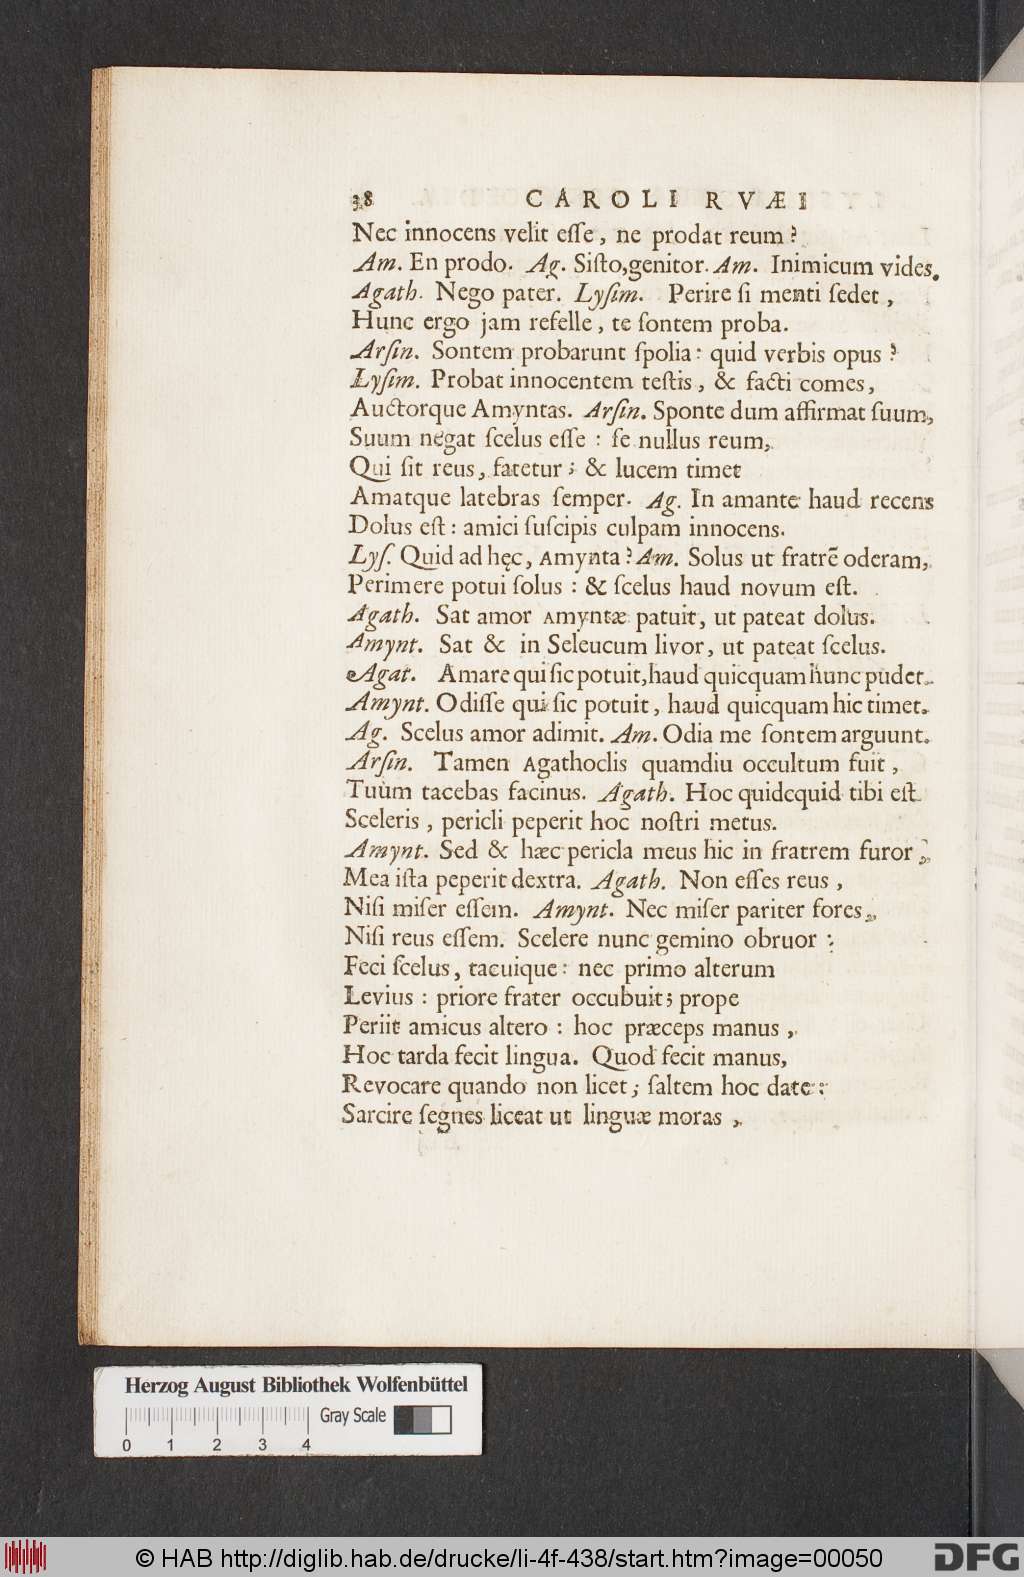 38 CAROLI RVÆI
Nec innocens velit eſſe, ne prodat reum?
Am. En prodo. Ag. Siſto, genitor. Am. Inimicum vides.
Agath. Nego pater. Lyſim. Perire ſi menti ſedet,
Hunc ergo jam refelle, te ſontem proba.
Arſin. Sontem probarunt ſpolia: quid verbis opus?
Lyſim. Probat innocentem teſtis, & facti comes,
Auctorque Amyntas. Arſin. Sponte dum affirmat ſuum,
Suum negat ſcelus eſſe: ſe nullus reum,
Qui ſit reus, fatetur; & lucem timet
Amatque latebras ſemper. Ag. In amante haud recens
Dolus eſt: amici ſuſcipis culpam innocens.
Lyſ. Quid ad hęc, Amynta? Am. Solus ut fratrē oderam,
Perimere potui ſolus: & ſcelus haud novum eſt.
Agath. Sat amor Amyntæ patuit, ut pateat dolus.
Amynt. Sat & in Seleucum livor, ut pateat ſcelus.
Agat. Amare qui ſic potuit, haud quicquam hunc pudet.
Amynt. Odiſſe qui ſic potuit, haud quicquam hic timet.
Ag. Scelus amor adimit. Am. Odia me ſontem arguunt.
Arſin. Tamen Agathoclis quamdiu occultum fuit,
Tuùm tacebas facinus. Agath. Hoc quidcquid tibi eſt
Sceleris, pericli peperit hoc noſtri metus.
Amynt. Sed & hæc pericla meus hic in fratrem furor,
Mea iſta peperit dextra. Agath. Non eſſes reus,
Niſi miſer eſſem. Amynt. Nec miſer pariter fores,
Niſi reus eſſem. Scelere nunc gemino obruor:
Feci ſcelus, tacuique: nec primo alterum
Levius: priore frater occubuit; prope
Periit amicus altero: hoc præceps manus,
Hoc tarda fecit lingua. Quod fecit manus,
Revocare quando non licet; ſaltem hoc date:
Sarcire ſegnes liceat ut linguæ moras,
Herzog August Bibliothek Wolfenbüttel
Gray Scale
0 1 2 3 4
© HAB http://diglib.hab.de/drucke/li-4f-438/start.htm?image=00050
DFG